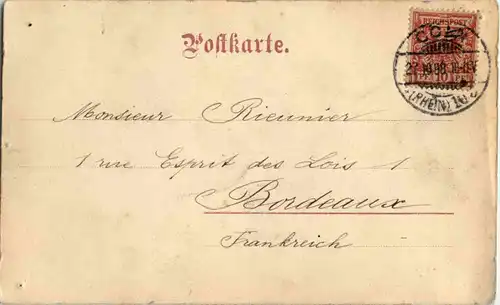 Postkarte.
REICHSPOST
COELN
(RHEIN)
Monsieur Rieunier
1 rue Esprit des Lois 1
Bordeaux
Frankreich